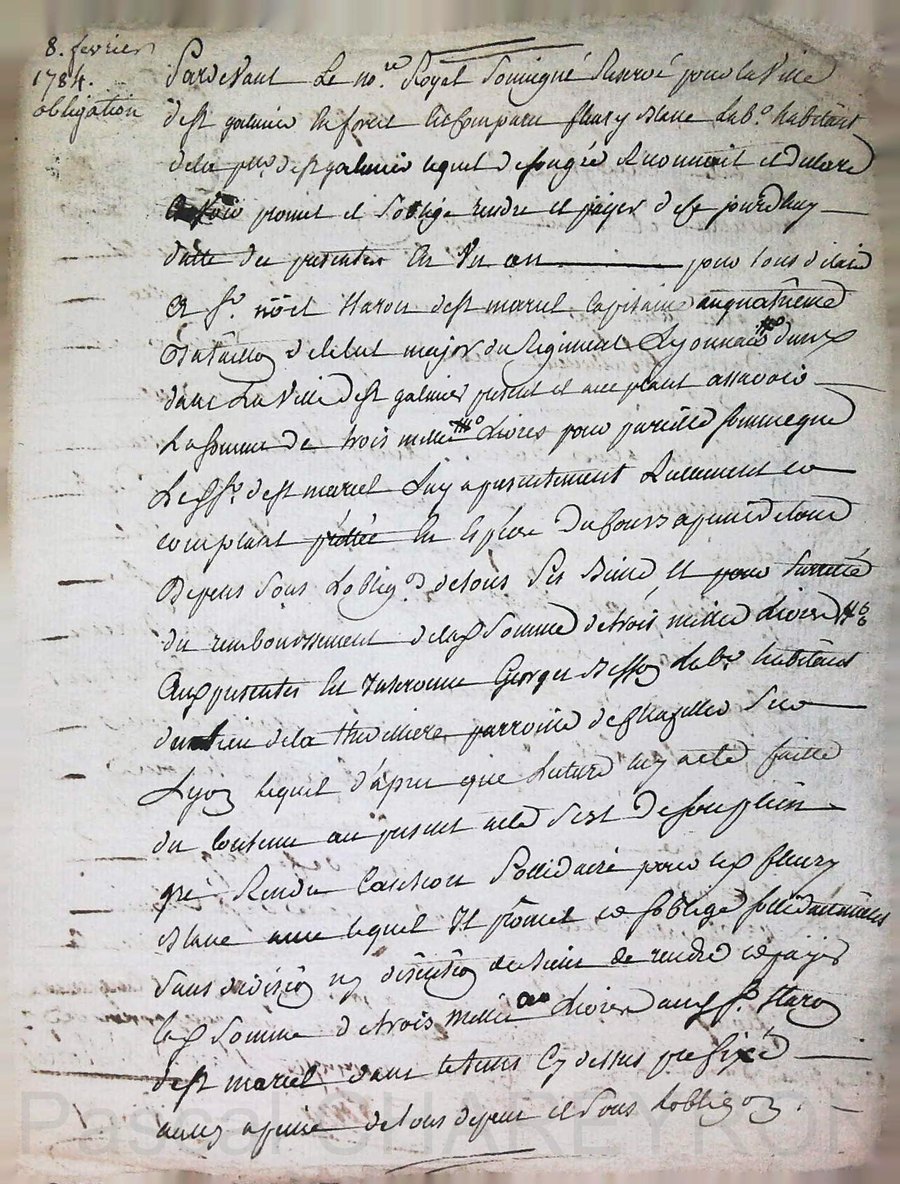 8. fevrier
1784.
obligation
Pardevant Le no.re Royal Soussigné Reservé pour la Ville
de st galmier en forest est Comparu fleury Blanc lab.r habitant
de la p.sse de st galmier lequel de son gré Reconnait et declare
devoir promet et S'oblige rendre et payer d'ese jourdhuy
datte des presentes en Un an pour tous delais
a S.r noël Haron de st marcel Capitaine au quatrieme
Bataillon debut major du Regiment Lyonnais
dans La Ville de st galmier present et acceptant assavoir
La somme de trois mille livres pour pareille somme que
Led S.r de st marcel Luy a presentement Reellement et
comptant prêtée en Espece Du Cours a peine de tous
Depens Sous L'oblig.on de tous Ses Biens et pour Surreté
du remboursement de lad Somme de trois mille Livres
Aux presentes est Intervenu George Besson lab.r habitant
du lieu de la thuilliere parroisse de Chazelles Sur
Lyon lequel d'apres que Lecture luy a eté faitte
du Contenu au present acte S'est De son plein
gré Rendu Caution Sollidaire pour led fleury
Blanc avec lequel Il promet et s'oblige sollidairement
Sans division ny discution de biens de rendre et payer
lad Somme de trois mille Livres aud S.r Haron
de st marcel dans le tems Cy dessus prefixé
aussy a peine de tous depens et Sous L'obligon.
Pascal CHAREYRON